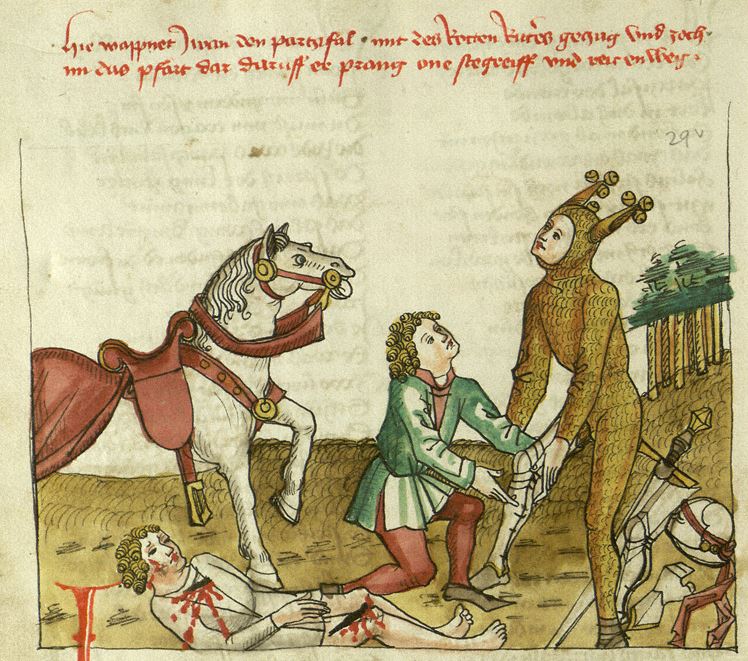 Hie wappnet Jwan den partzifal · mit des Rotten Ritters gezúg vnd zoch
im das pfärt dar daruff er sprang one stegreiff vnd reit enweg ·
29v
J